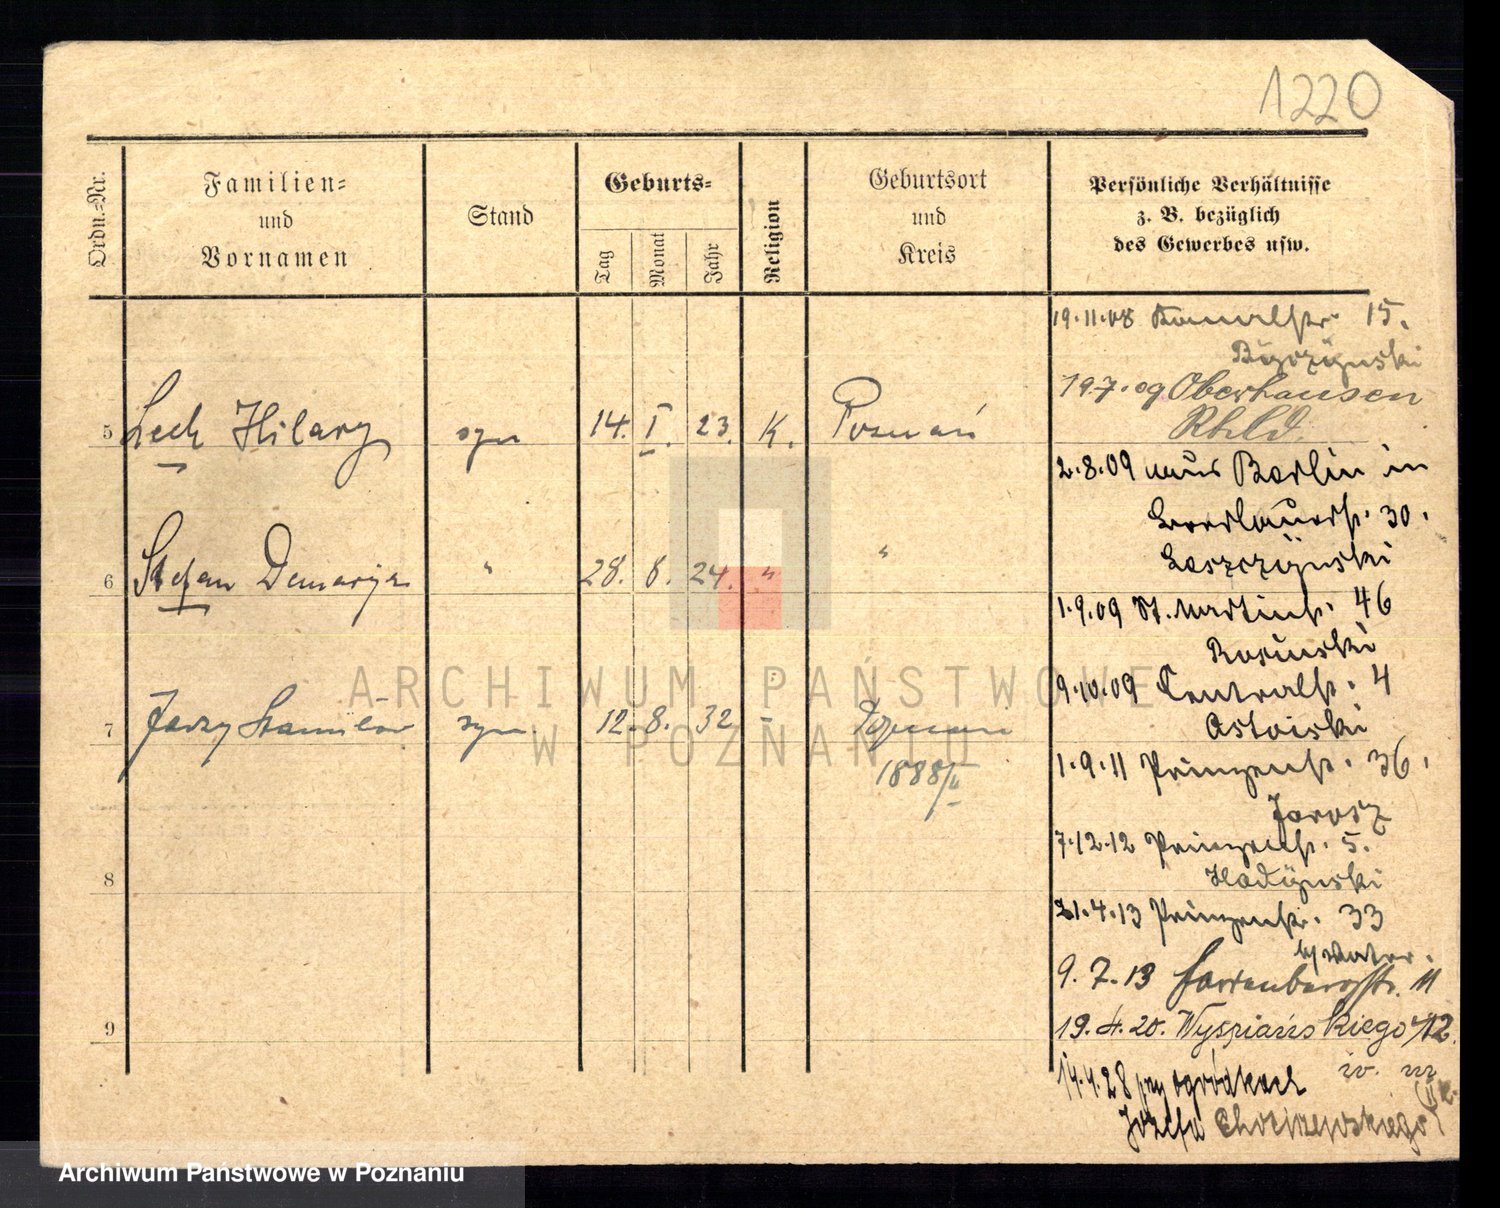 1220
Ordn.-Nr.
Familien-
und
Vornamen
Stand
Geburts-
Tag
Monat
Jahr
Religion
Geburtsort
und
Kreis
Persönliche Verhältnisse
z. B. bezüglich
des Gewerbes usw.
5 Lech Hilary syn 14. I. 23. K. Poznań
6 Stefan " 28. 8. 24. " "
7 Jerzy Stanisław syn 12. 8. 32 - Poznań
1888/II
8
9
19.11.08 15.
19.7.09 Oberhausen
Rhld.
2.8.09 aus Berlin in
30.
Leszczÿnski
1.9.09 St. Martinstr. 46
Rosinski
9.10.09 Centralstr. 4
1.9.11 Prinzenstr. 36.
Jarosz
7.12.12 Prinzenstr. 5.
21.4.13 Prinzenstr. 33
b/ Vater.
9.7.13 11
19.4.20. Wyspiańskiego 12.
w. m
14.4.28 przy ogródkach
Józefa Chociszewskiego
ARCHIWUM PAŃSTWOWE
W POZNANIU
Archiwum Państwowe w Poznaniu